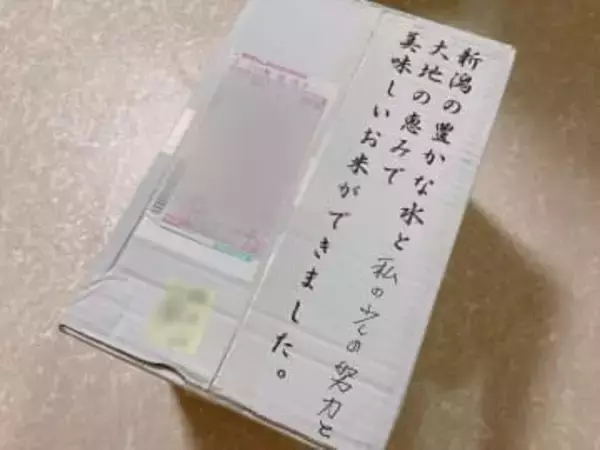 新潟の豊かな水と
私の少しの努力と
大地の恵みで
美味しいお米ができました。